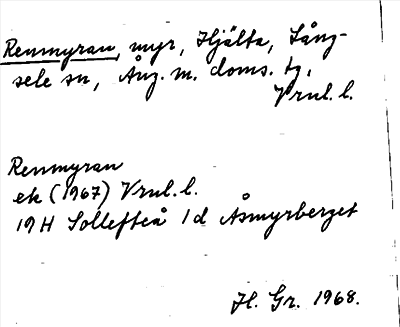 Renmyran, myr, Hjälta, Lång-
sele sn, Ång. m. doms. tg.
Vrnl. l.
Renmyran
ek (1967) Vrnl. l.
19H Sollefteå 1d Åsmyrberget
H. Gr. 1968.